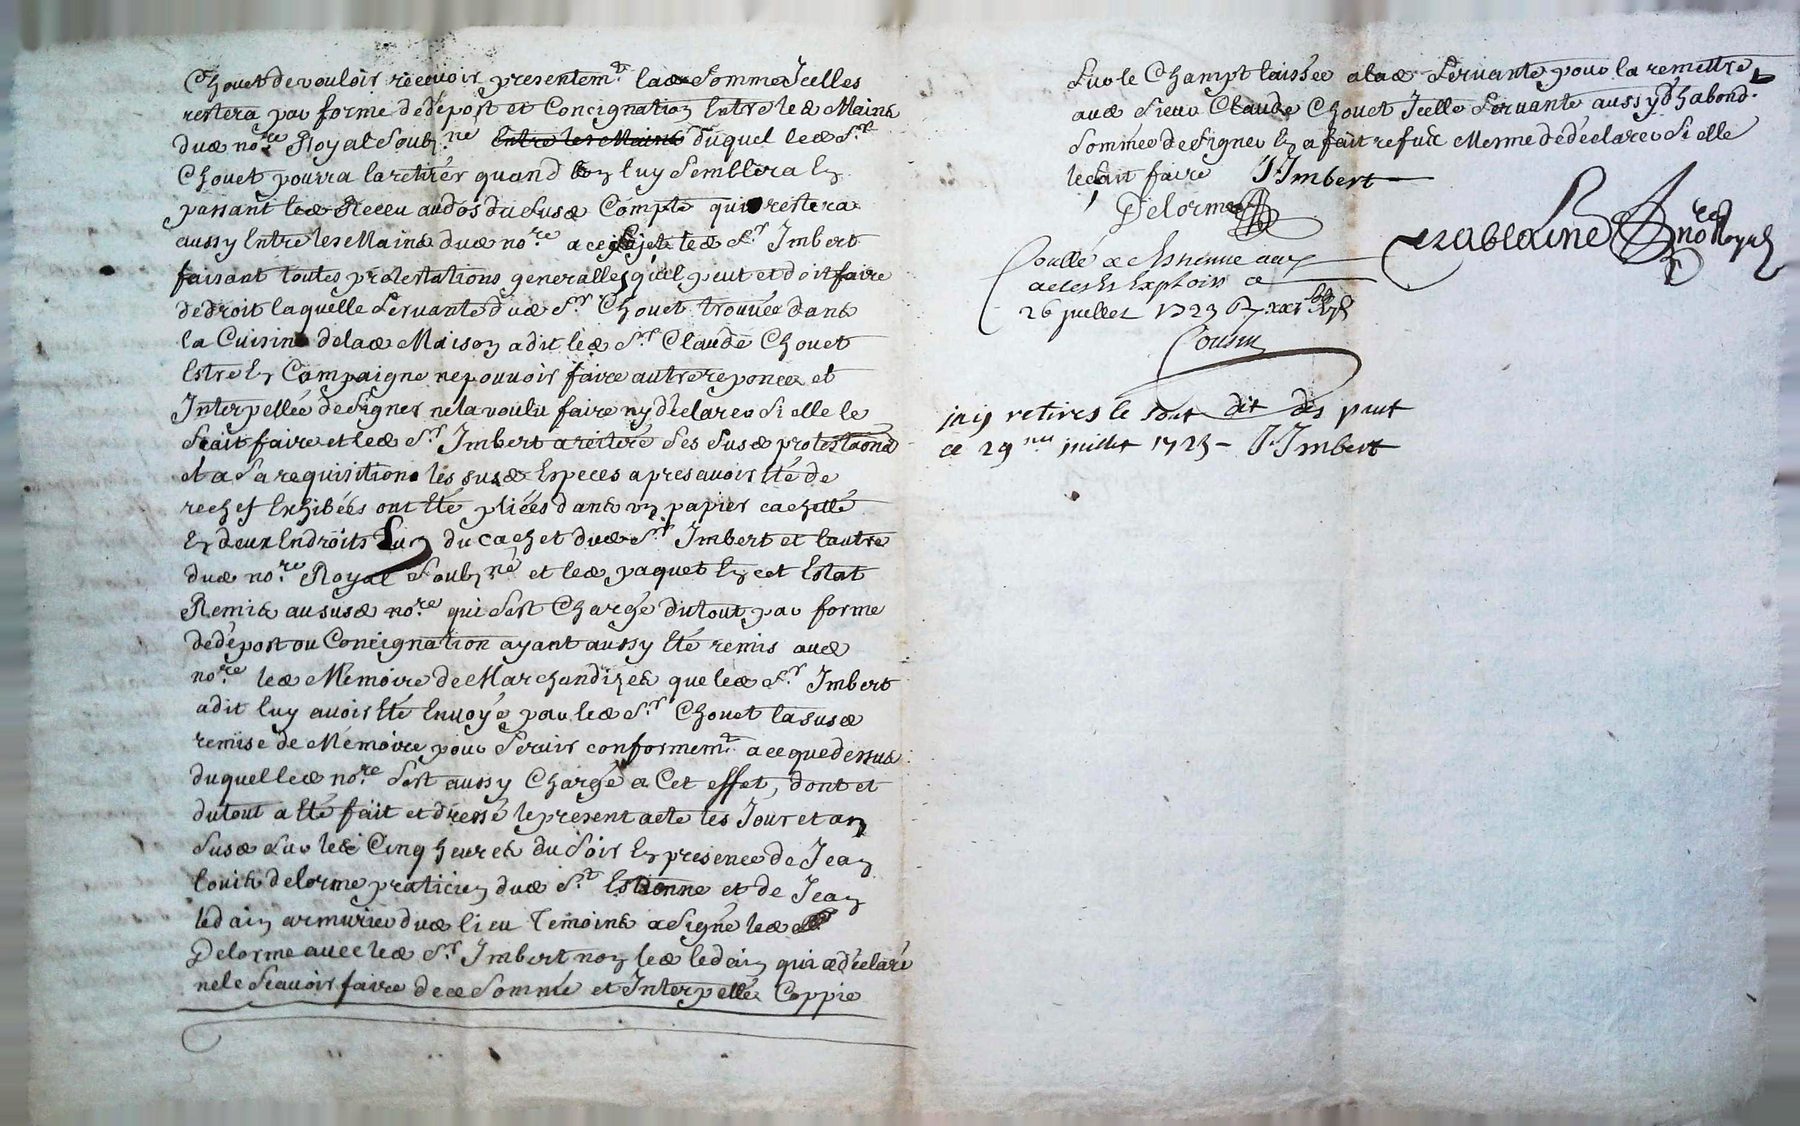 Chouet de vouloir recevoir presentem.t lad. somme Icelles
restera par forme de dépost et Concignation Entre les Mains
dud. no.re Royal soubz.né Entre les Mains duquel led. S.r
Chouet pourra la retirér quand bon luy semblera En
passant led. Receu au dos du susd. Compte qui restera
aussy Entre les Mains dud. no.re a ce sujet led. S.r Imbert
faisant toutes protestations generalles qu'il peut et doit faire
de droit laquelle servante dud. S.r Chouet trouvée dans
la Cuisine de lad. Maison a dit led. S.r Claude Chouet
Estre En Campaigne ne pouvoir faire autre reponce et
Interpellée de signer ne la voulu faire ny déclarer si elle le
sçait faire et led. S.r Imbert a réiteré ses susd. protestaons
et a sa requisition les susd. Especes apres avoir Eté de
rechef Exhibées ont Eté pliées dans un papier cachetté
En deux Endroits L'un du cachet dud. S.r Imbert et l'autre
dud. no.re Royal soubz.né et led. paquet En cet Estat
Remis au susd. no.re qui s'est Chargé du tout par forme
de dépost ou Concignation ayant aussy Eté remis aud.
no.re led. Mémoire de Marchandizes que led. S.r Imbert
a dit luy avoir Eté Envoyé par led. S.r Chouet la susd.
remise de Mémoire pour servir conformem.t a ce que dessus
duquel led. no.re s'est aussy Chargé a Cet effet, dont et
du tout a Eté fait et dressé le present acte les Jour et an
susd. sur les Cinq heures du soir En presence de Jean
Louis delorme praticien dud. S.t Estienne et de Jean
ledain armurier dud. lieu Témoins a signé led.
Delorme avec led. S.r Imbert non led. ledain qui a déclaré
ne le sçavoir faire de ce sommé et Interpellé Coppie
sur le Champt laissée a lad. servante pour la remettre
aud. sieur Claude Chouet Icelle servante aussy d'habond.
sommée de signer En a fait refus Mesme de déclarer si elle
le sçait faire J. Imbert
Delorme
ezableine no.re Royal
Conllé a S.t Estienne aux
actes Et Exploits ce
26 juillet 1723
Cousin
jay retirés le tout dit des paut
ce 29.me juillet 1723 - J. Imbert